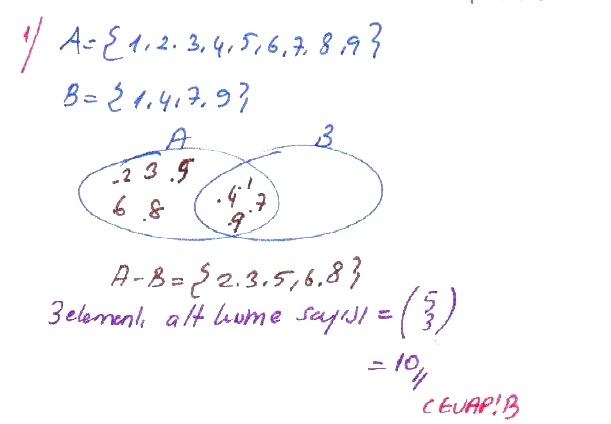 1/ A={1,2.3,4,5,6,7,8,9}
B={1,4,7,9}
A B
.2 3 .5
6 .8
.4 .1 .7
.9
A-B={2.3.5,6.8}
3 elemanlı alt küme sayısı = (5 3)
= 10//
CEVAP:B